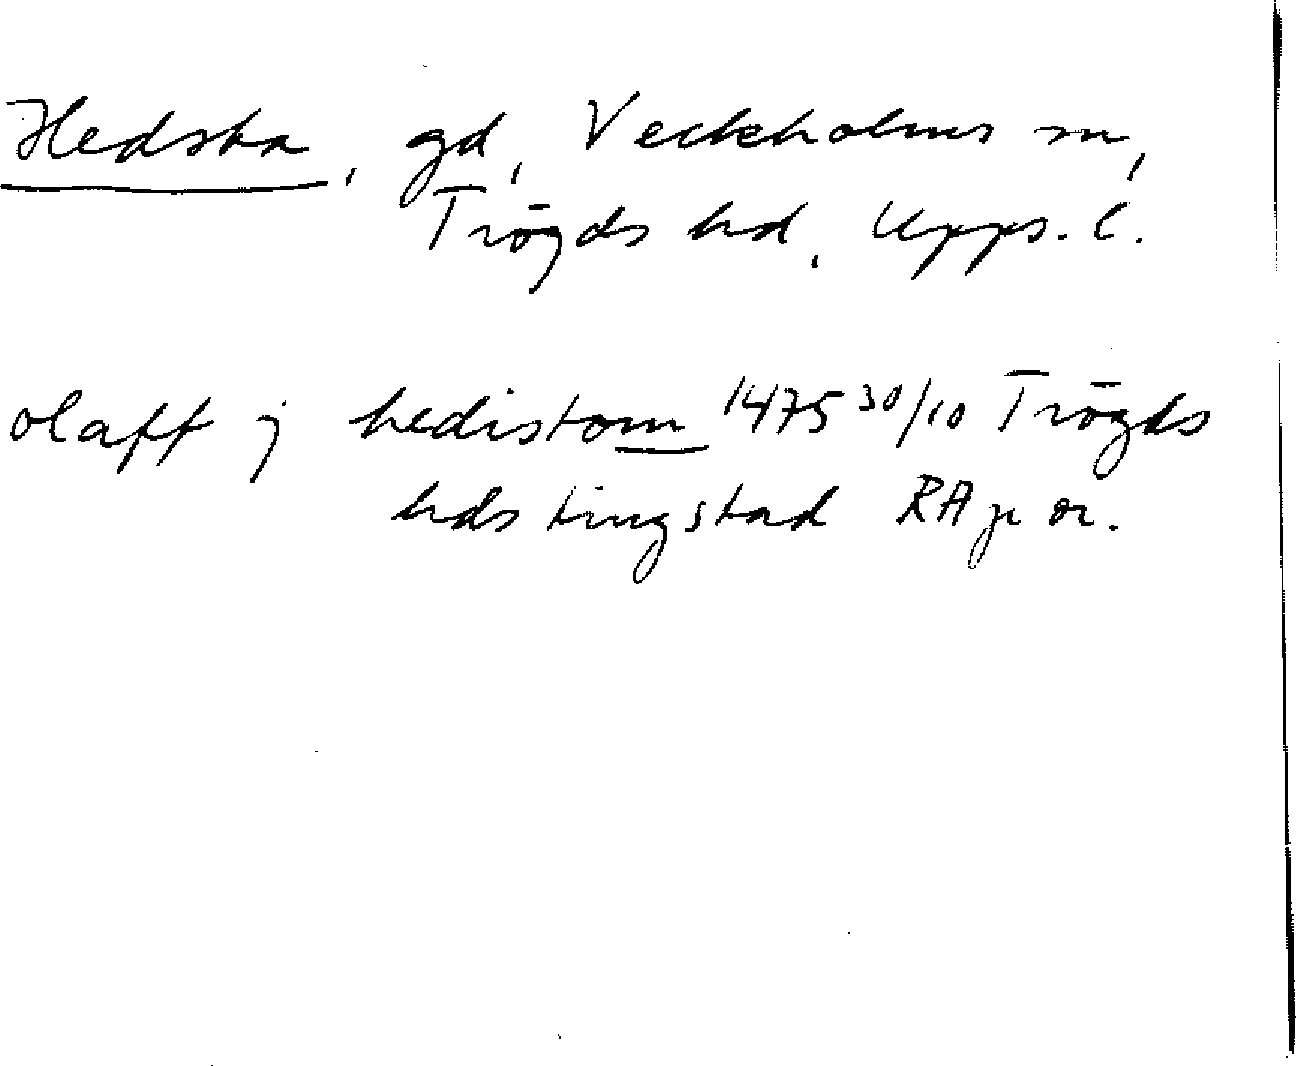 Hedsta, gd, Veckholms sn,
Trögds hd, Upps. l.
olaff j hedistom 1475 30/10 Trögds
hds tingstad RA p or.